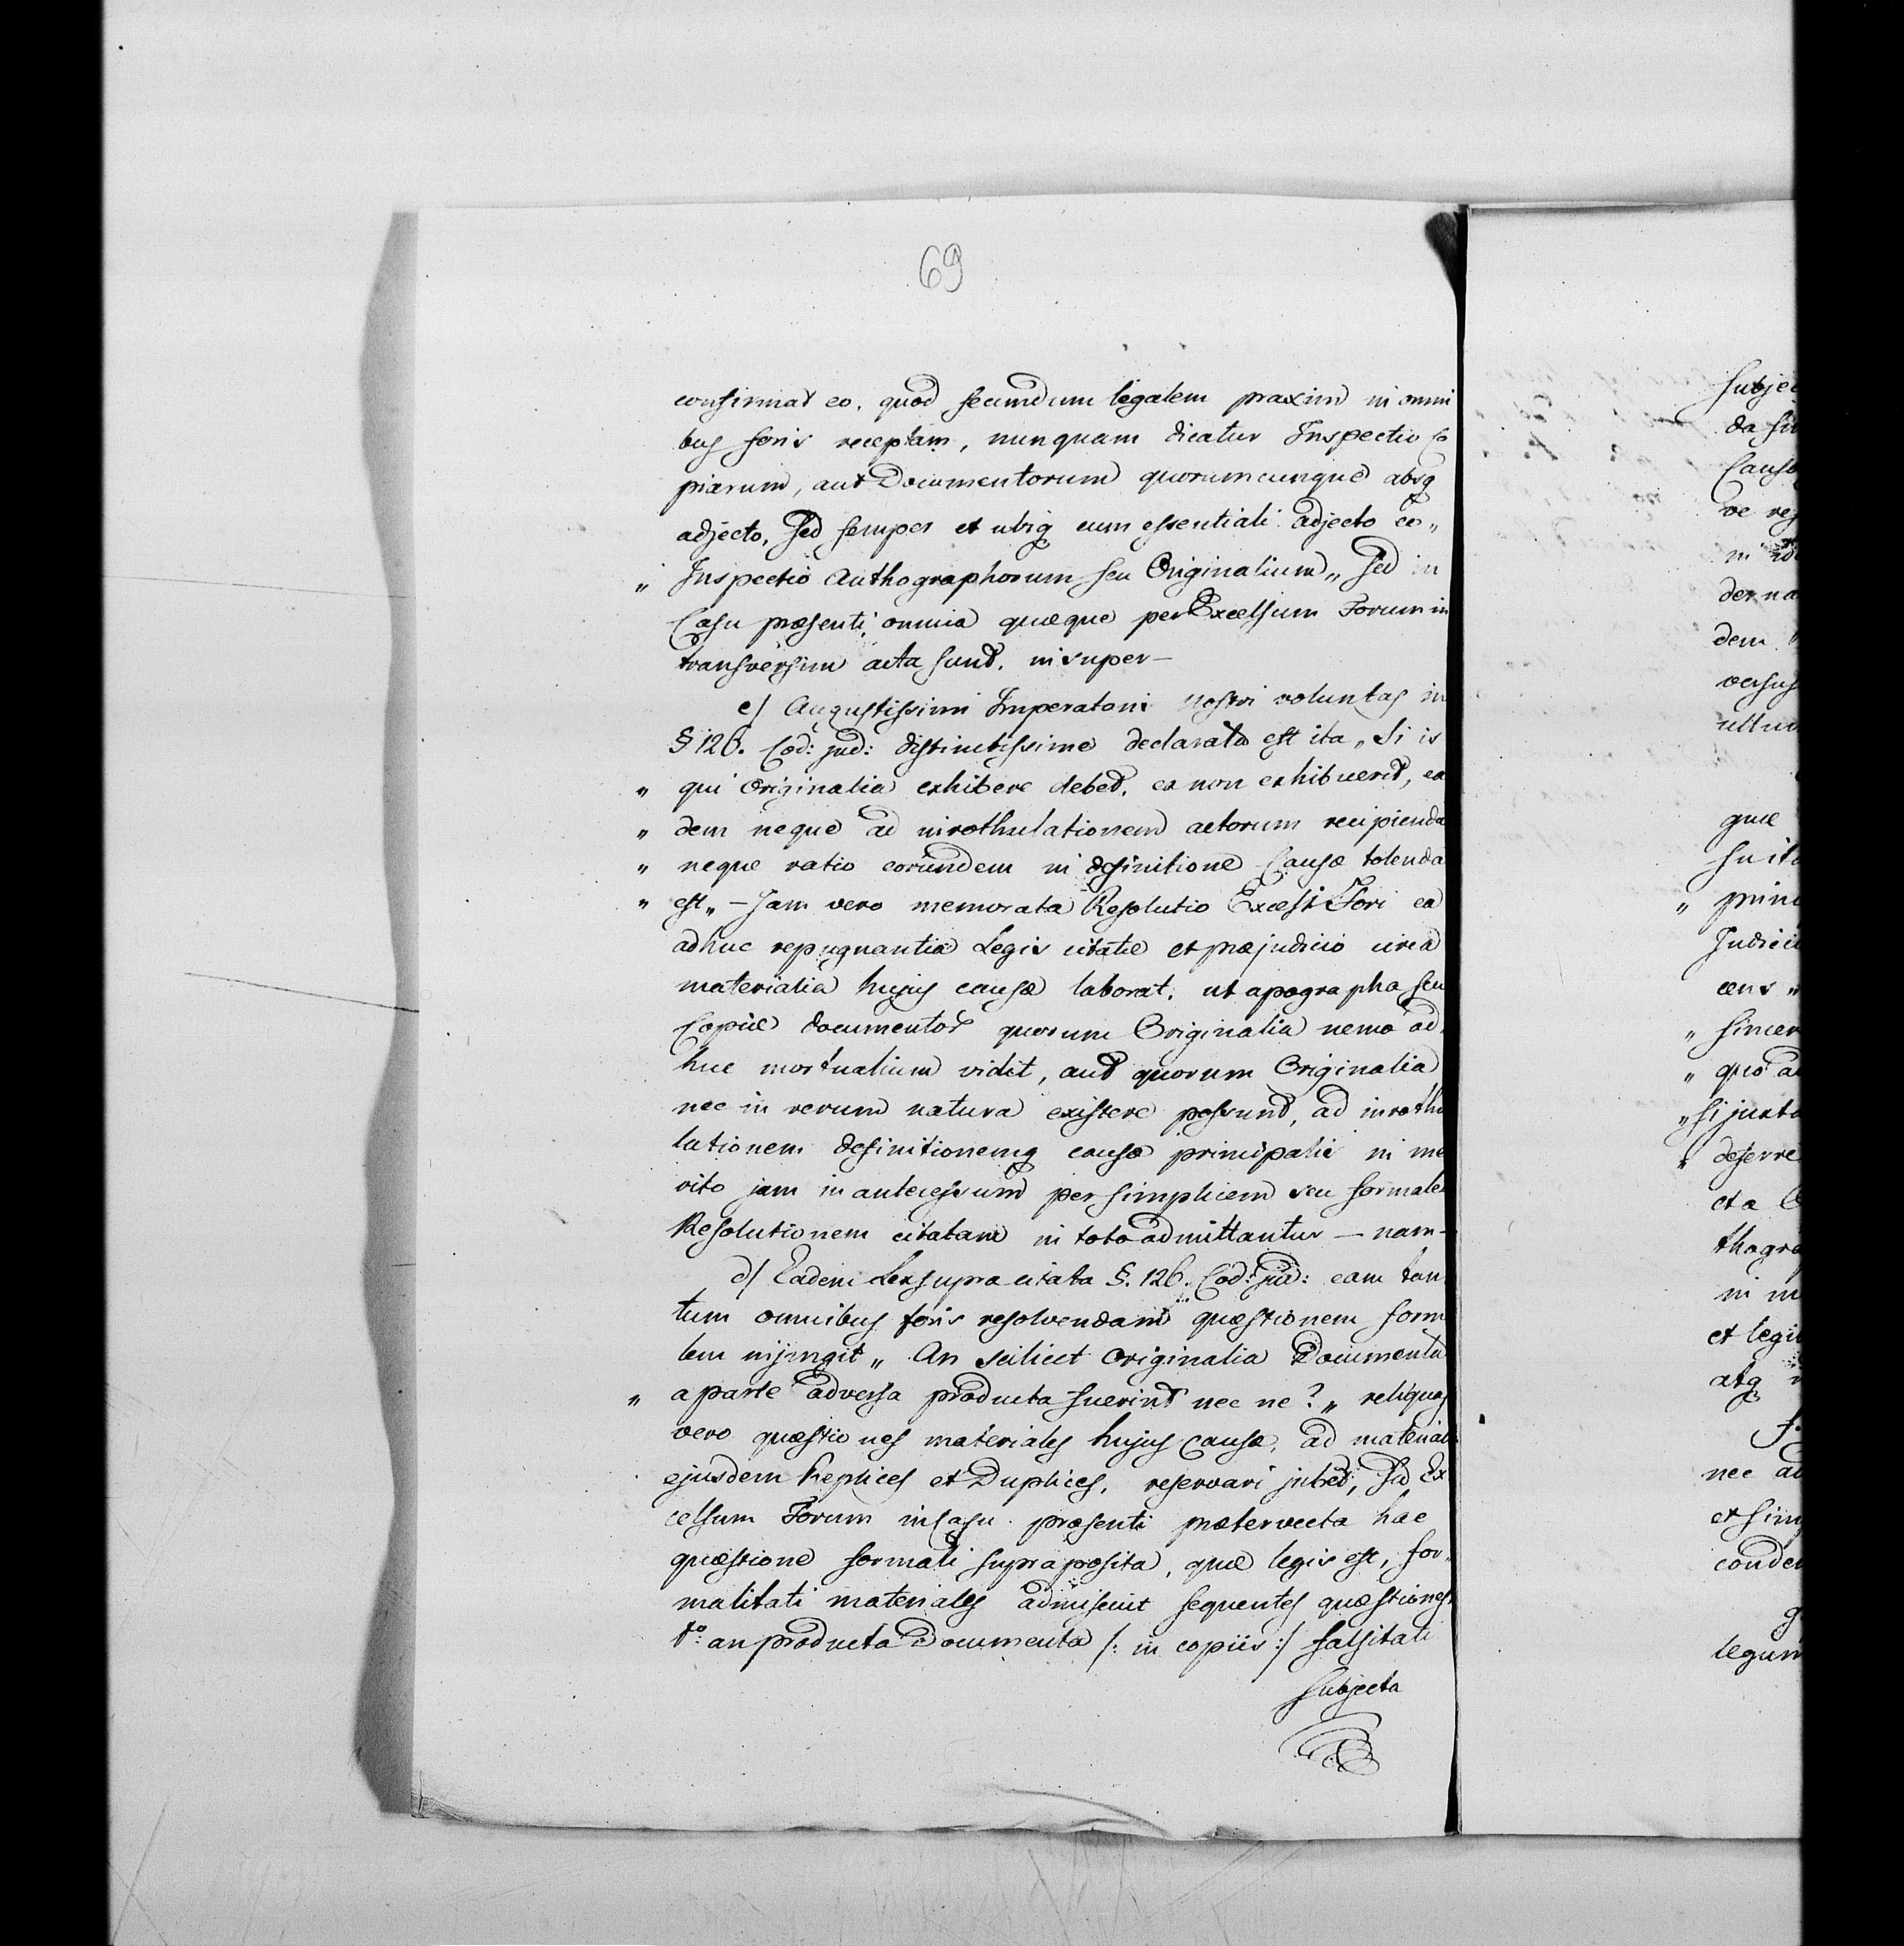 69
confirmat eo, quod secundum legalem praxim in omni
bus foris receptam, nunquam dicatur Inspectio Co
piarum, aut Documentorum quorumcunque absq
adjecto, sed semper et ubiq cum essentiali adjecto eo„
„ Inspectio Authographorum seu Originalium„ sed in
Casu præsenti, omnia quæque per Excelsum Forum in
transversum acta sunt, insuper—
c/ Augustissimi Imperatoris nostri voluntas in
§ 126. Cod: jud: distinctissime declarata est ita „ Si is
„ qui Originalia exhibere debet, ea non exhibuerit, ea
„ dem neque ad inrothulationem actorum recipienda
„ neque ratio eorundem in definitione Causæ tolenda
„ est„ — Jam vero memorata Resolutio Excelsi Fori ea
adhuc repugnantia Legis citatæ et præjudicio circa
materialia hujus causæ laborat, ut apographa seu
Copiæ documentor quorum Originalia nemo ad
huc mortualium vidit, aut quorum Originalia
nec in rerum natura existere possunt, ad inrothu
lationem definitionemq causæ principalis in me
rito jam in antecessum per simplicem seu formalem
Resolutionem citatam in toto admittantur — nam—
d/ Eadem Lex supra citata §. 126. Cod: jud: eam tan
tum omnibus foris resolvendam quæstionem forma
lem injungit „ An scilicet Originalia Documenta
„ a parte adversa producta fuerint nec ne? „ reliquas
vero quæstiones materiales hujus Causæ, ad materiales
ejusdem Replices et Duplices, reservari jubet, sed Ex
celsum Forum in Casu præsenti prætervecta hac
quæstione formali supraposita, quæ legis est, for„
malitati materiales admiscuit sequentes quæstiones
1º: an producta Documenta /: in copiis :/ falsitati
subjecta